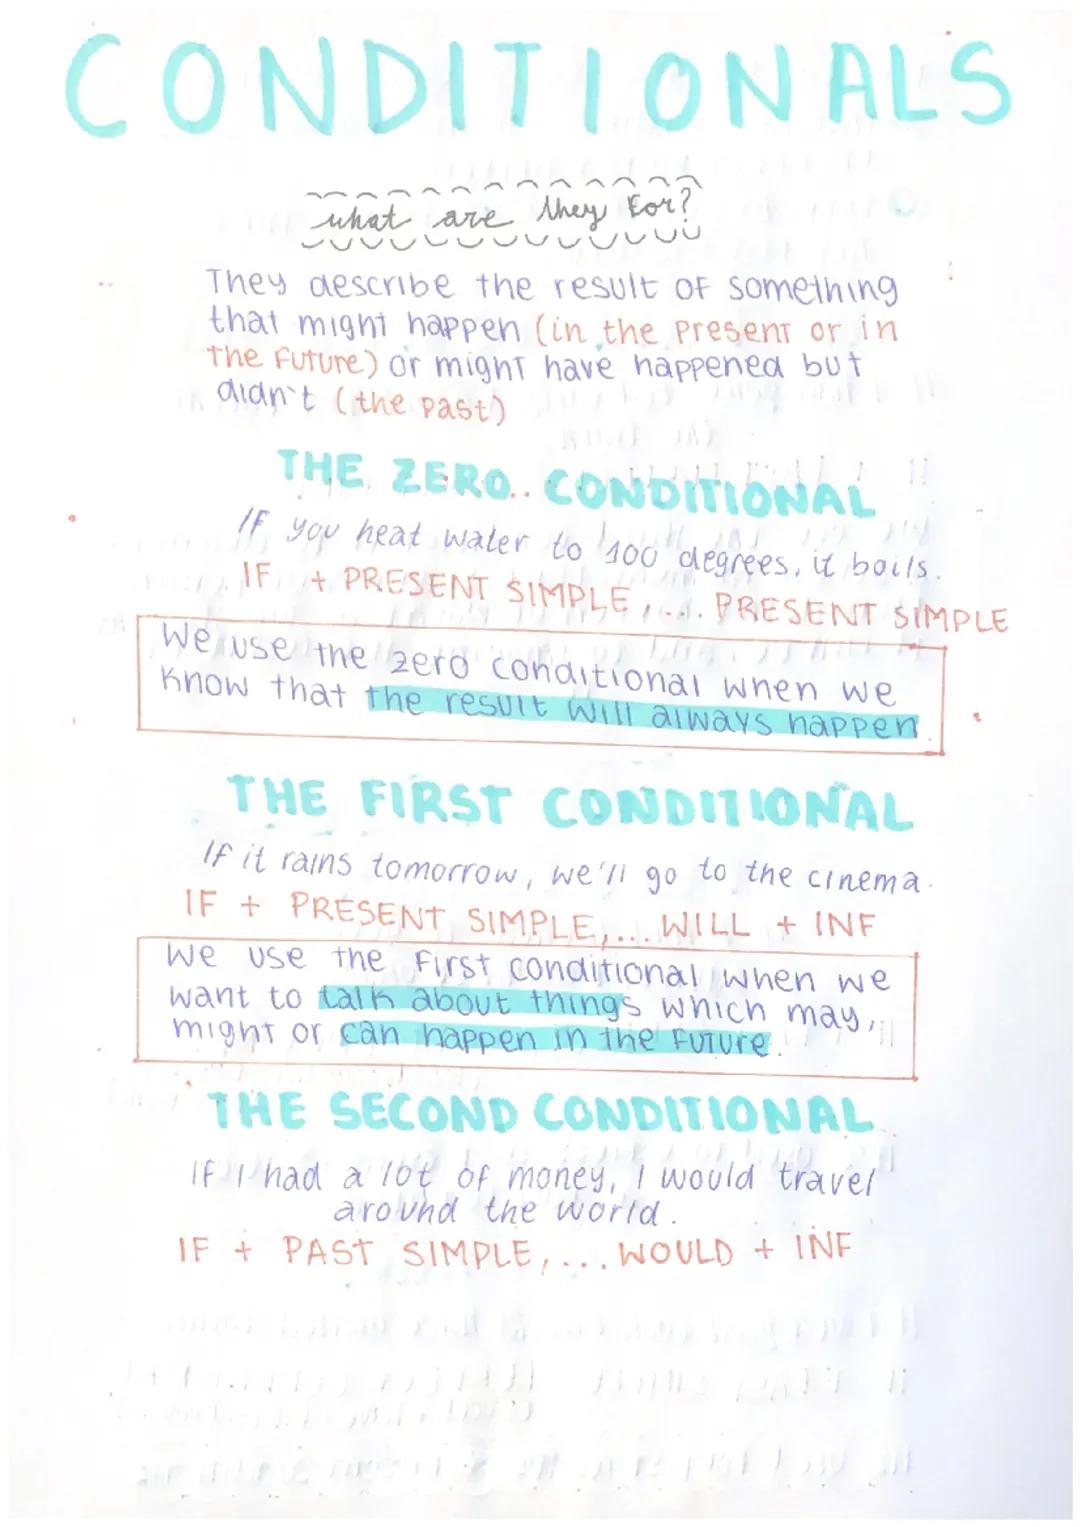 CONDITIONALS
what are they for?
They describe the result of something
that might happen (in the present or in
the future) or might have happened but
didn't (the past)
THE ZERO CONDITIONAL
If you heat water to 100 degrees, it boils.
IF + PRESENT SIMPLE, ... PRESENT SIMPLE
We use the zero conditional when we
know that the result will always happen.
THE FIRST CONDITIONAL
If it rains tomorrow, we'll go to the cinema.
IF + PRESENT SIMPLE,... WILL + INF
We use the first conditional when we
want to talk about things which may,
might or can happen in the future.
THE SECOND CONDITIONAL
If I had a lot of money, I would travel
around the world.
IF + PAST SIMPLE,... WOULD + INF